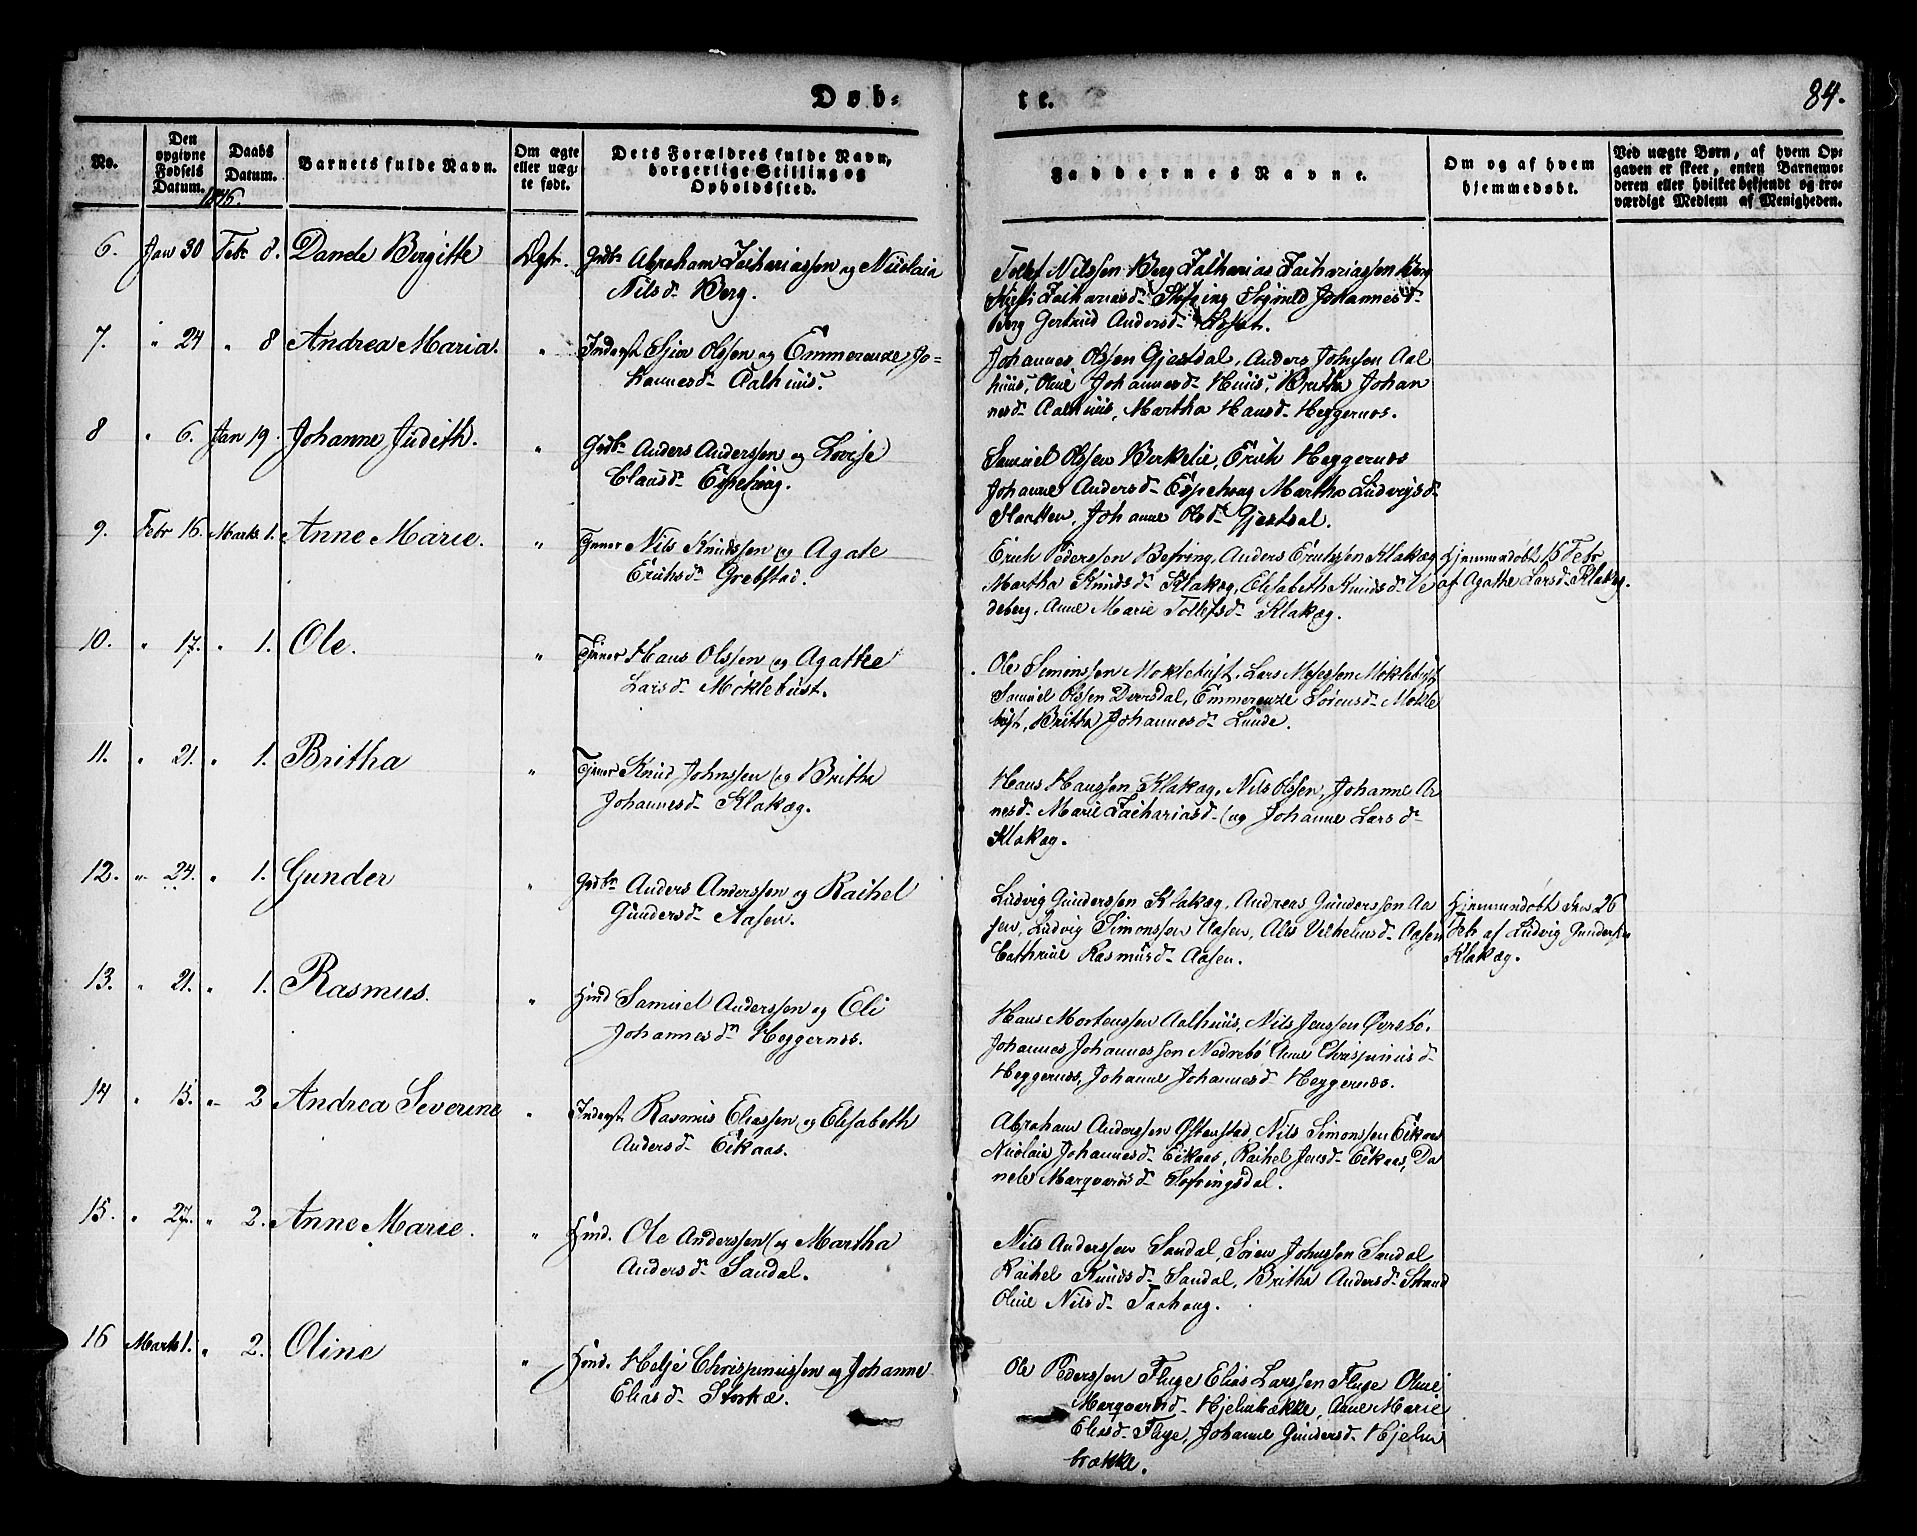 Døb-
te.
84.
No.
Den opgivne Fødsels Datum.
Daabs Datum.
Barnets fulde Navn.
Om ægte eller uæg-te født.
Dets Forældres fulde Navn, borgerlige Stilling og Opholdssted.
Faddernes Navne.
Om og af hvem hjemmedøbt.
Ved uægte Børn, af hvem Op-
gaven er skeet, enten Barnemo-
deren eller hvilket bekjendt og tro-
værdigt Medlem af Menigheden.
1846.
6. Jan 30 Febr 8. Danele Bergitte Ægt. Grdbr Abraham Zachariassen og Nicolaia
Nilsd. Berg.
Tollef Nilssen Berg Zacharias Zachariassen Berg
Zachariasd. Johannesd.
Berg Gertrud Andersd.
7. " 24 " 8 Andrea Maria. " Inderst Olssen og Emmerenze Jo-
hannesd. Aalhuus.
Johannes Olssen Gjestdal, Anders Johnsen Aal
huus, Oline Johannesd. Huus, Britha Johan
nesd. Aalhuus, Martha Hansd. Heggernes.
8 " 6. Jan 19. Johanne Judith. " Grdbr Anders Anderssen og Lovise
Clausd. Espehaug.
Samuel Olssen Birkelie, Erich Heggernes
Johanne Andersd. Espehaug Martha Ludvigsd.
Slaatten, Johanne Olsd. Gjestdal.
9. Febr 16. Marts 1. Anne Marie. " Tjener Nils Knudssen og Agate
Erichsd. Grebstad.
Erich Pederssen Befring, Anders Erichssen Klakæg
Martha Knudsd. Klakæg, Elisabeth Knudsd. Ve
deberg, Anne Marie Tollefsd. Klakæg.
Hjemmedøbt 15 Febr
af Agathe Larsd. Klakæg.
10. " 17. " 1. Ole. " Tjener Hans Olssen og Agathe
Larsd. Møklebust.
Ole Simonssen Møklebust, Lars Mosessen Møklebust
Samuel Olssen Dvergsdal, Emmerenze Sørensd. Møkle
bust, Britha Johannesd. Lunde.
11. " 21. " 1. Britha " Tjener Knud Johnssen og Britha
Johannesd. Klakæg.
Hans Hanssen Klakæg, Nils Olssen, Johanne Ar
nesd. Marie Zachariasd. og Johanne Larsd.
Klakæg.
12. " 24. " 1. Gunder " Grdbr Anders Anderssen og Rachel
Gundersd. Aasen.
Ludvig Gunderssen Klakæg, Andreas Gunderssen Aa
sen, Ludvig Simonssen Aasen, Alis Vilhelmsd. Aasen
Cathrine Rasmusd. Aasen.
Hjemmedøbt den 26
Feb af Ludvig Gunderssen
Klakæg.
13. " 21. " 1. Rasmus. " Huusmd Samuel Anderssen og Eli
Johannesd. Heggernes.
Hans Mortenssen Aalhuus, Nils Jenssen Øvrebø,
Johannes Johannessen Nedrebø Anne Chrispinusd.
Heggernes, Johanne Johannesd. Heggernes.
14 " 15. " 2 Andrea Severine " Inderst Rasmus Eliassen og Elisabeth
Andersd. Eikaas.
Abraham Anderssen Østenstad, Nils Simonssen Eikaas
Nicolaie Johannesd. Eikaas, Rachel Jensd. Eikaas, Da
nele Marqvardsd. Befringsdal.
15. " 27. " 2. Anne Marie. " Huusmd. Ole Anderssen og Martha
Andersd. Sandal.
Nils Anderssen Sandal, Søren Johnssen Sandal
Rachel Knudsd. Sandal, Britha Andersd. Strand
Oline Nilsd. Taahaug.
16 Marts 1. " 2. Oline " Huusmd. Helje Chrispinussen og Johanne
Eliasd.
Ole Pederssen Fluge Elias Larssen Fluge Oline
Marqvardsd. Hjelmbrække, Anne Marie
Eliasd. Fluge, Johanne Gundersd. Hjelm
brække.